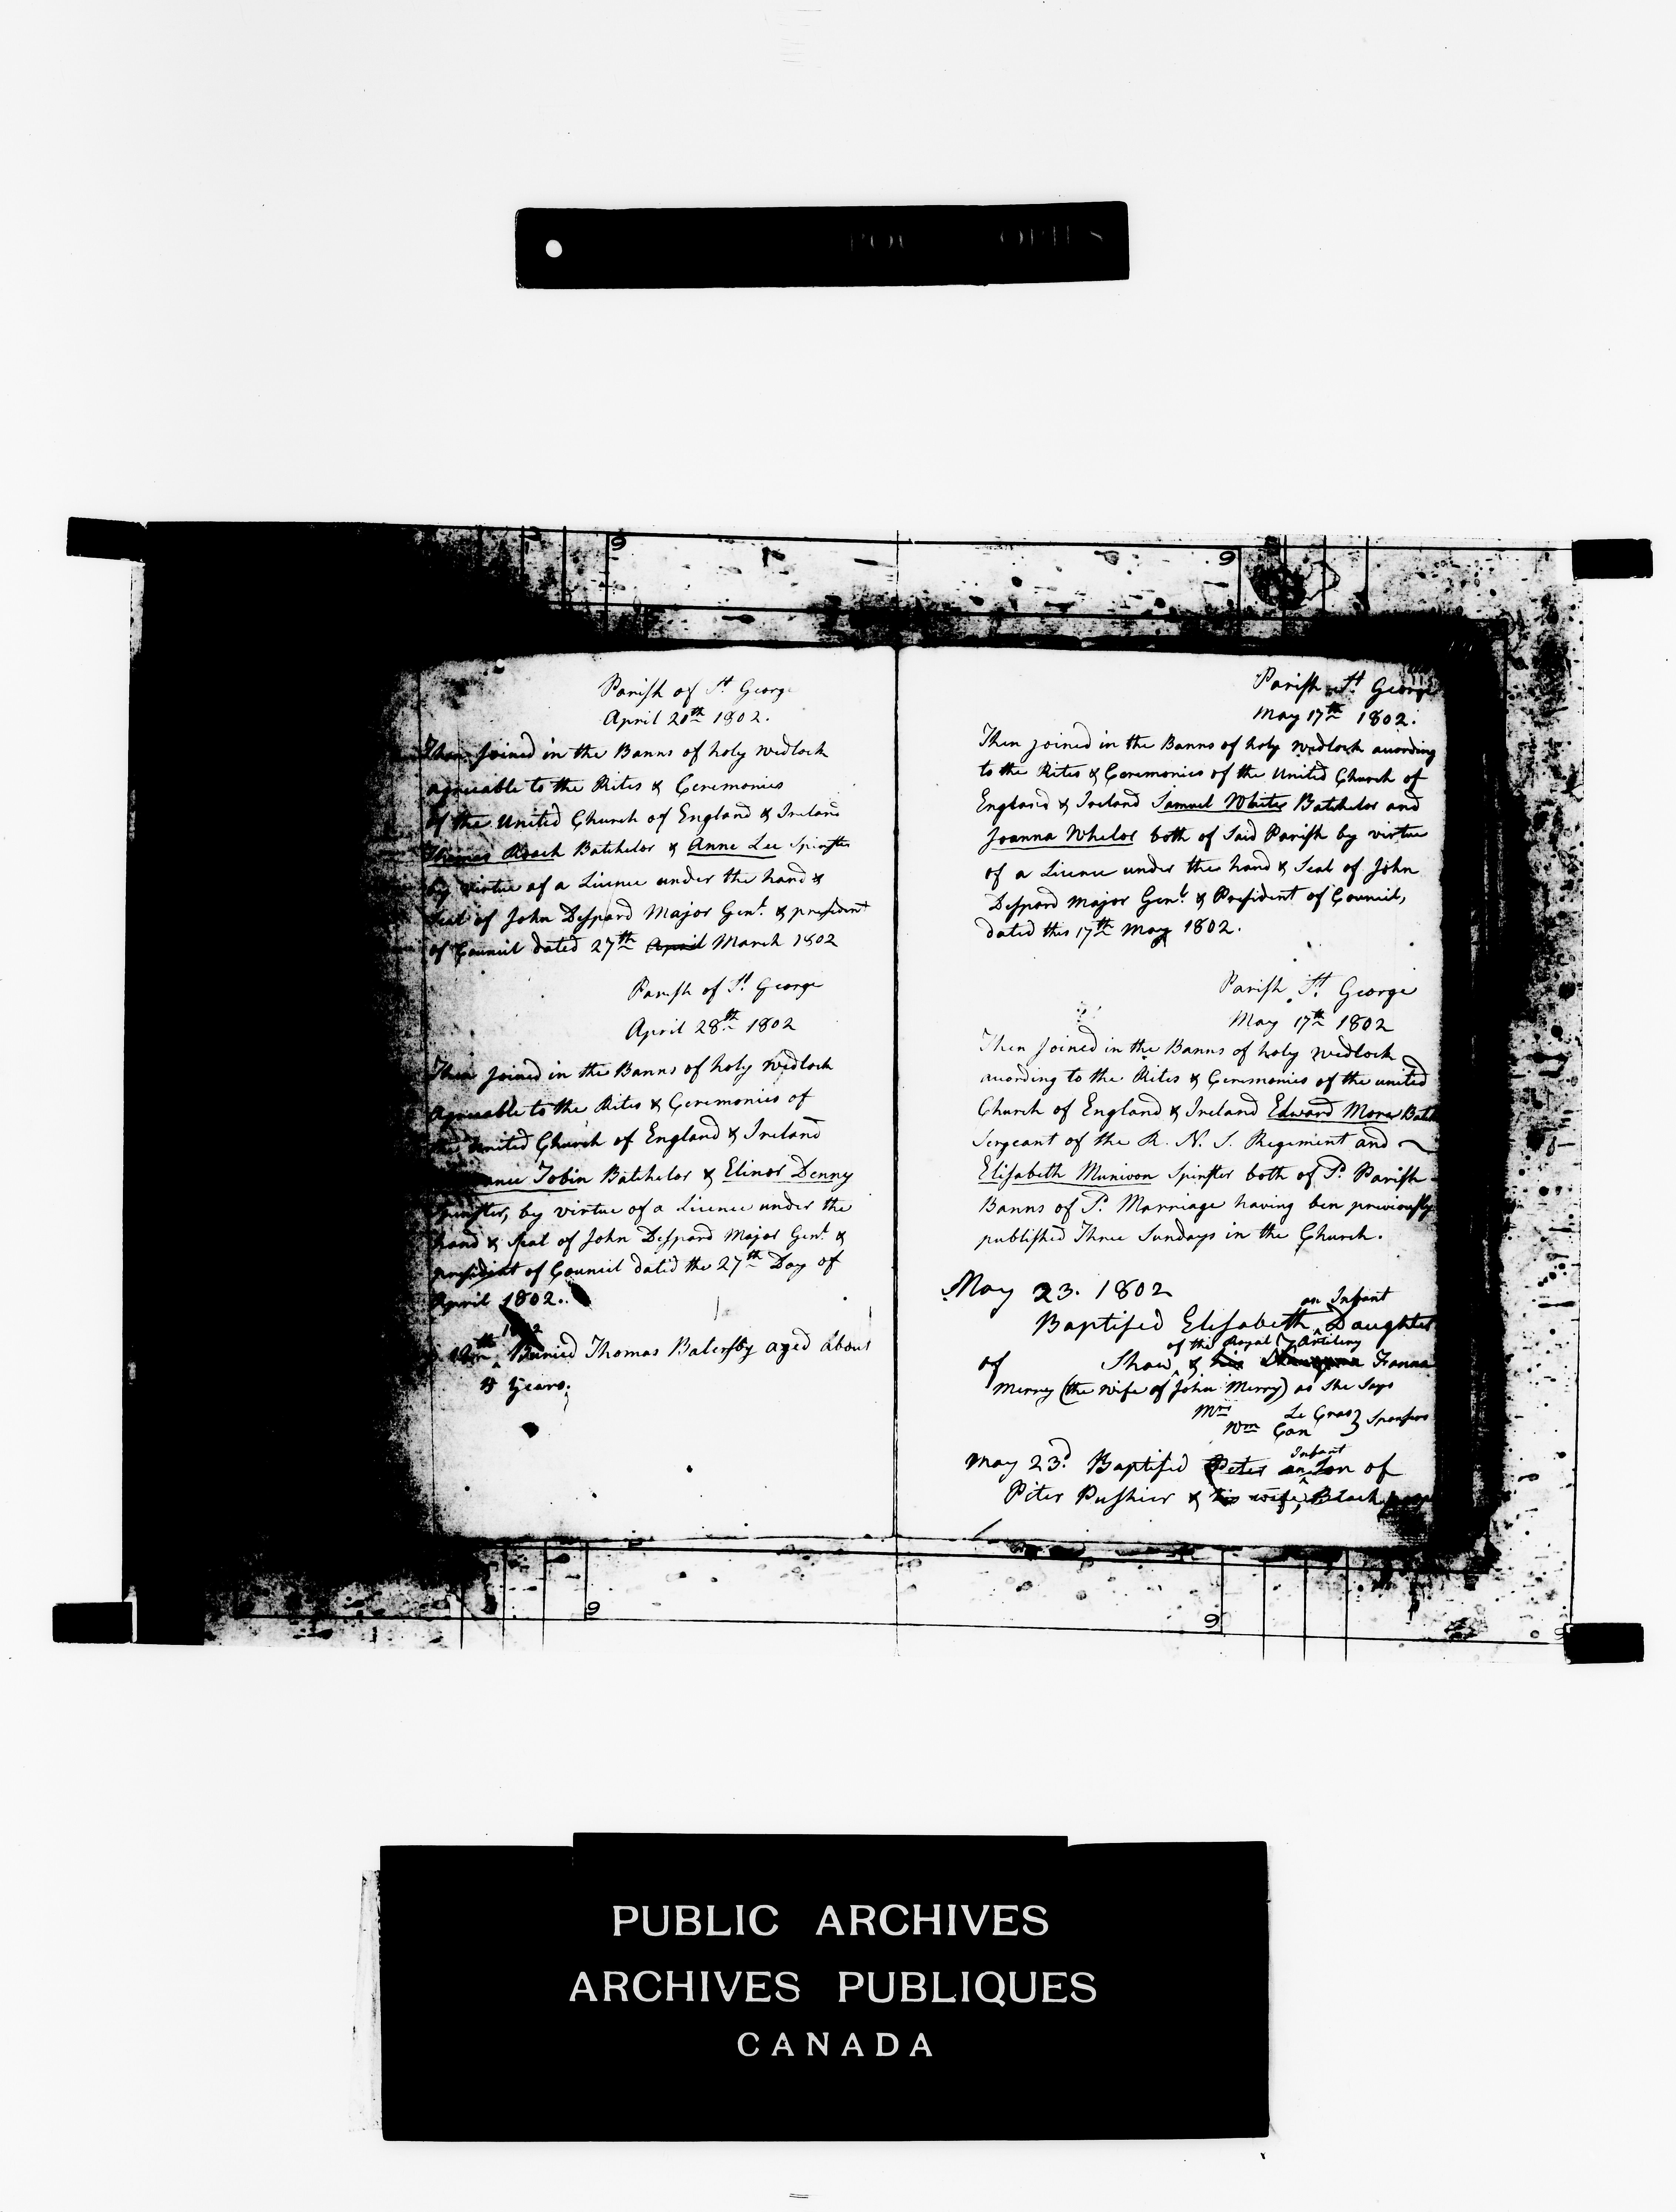 Parish of St. George
April 20th 1802.
Then joined in the Banns of holy wedlock
agreeable to the Rites & Ceremonies
of the United Church of England & Ireland
Thomas Roach Batchelor & Anne Lee Spinster
by virtue of a Licence under the hand &
Seal of John Despard Major Genl. & president
of Council dated 27th April March 1802
Parish of St. George
April 28th 1802
Then joined in the Banns of holy wedlock
Agreeable to the Rites & Ceremonies of
the United Church of England & Ireland
Tobin Batchelor & Elinor Denny
Spinster, by virtue of a Licence under the
hand & Seal of John Despard Major Genl. &
president of Council dated the 27th Day of
April 1802.
1802
Buried Thomas Batersby aged about
Years.
Parish St. George
May 17th 1802.
Then joined in the Banns of holy wedlock according
to the Rites & Ceremonies of the United Church of
England & Ireland Samuel White Batchelor and
Joanna Whelor both of Said Parish by virtue
of a Licence under the hand & Seal of John
Despard Major Genl. & President of Council,
dated this 17th May 1802.
Parish St. George
May 17th 1802
Then joined in the Banns of holy wedlock
according to the Rites & Ceremonies of the united
Church of England & Ireland Edward More Batch
Sergeant of the R. N. S. Regiment and
Elisabeth Munivon Spinster both of Sd. Parish
Banns of Sd. Marriage having ben previously
published Three Sundays in the Church.
May 23. 1802
an Infant
Baptised Elisabeth Daughter
of the Royal Artillery
of Shaw & his Hanna
Merry (the wife of John Merry) as She Says
Mrs Le Gras } Sponsors
Wm Gan
May 23d. Baptised Peter an Infant Son of
Peter Pushier & his wife, Black
PUBLIC ARCHIVES
ARCHIVES PUBLIQUES
CANADA